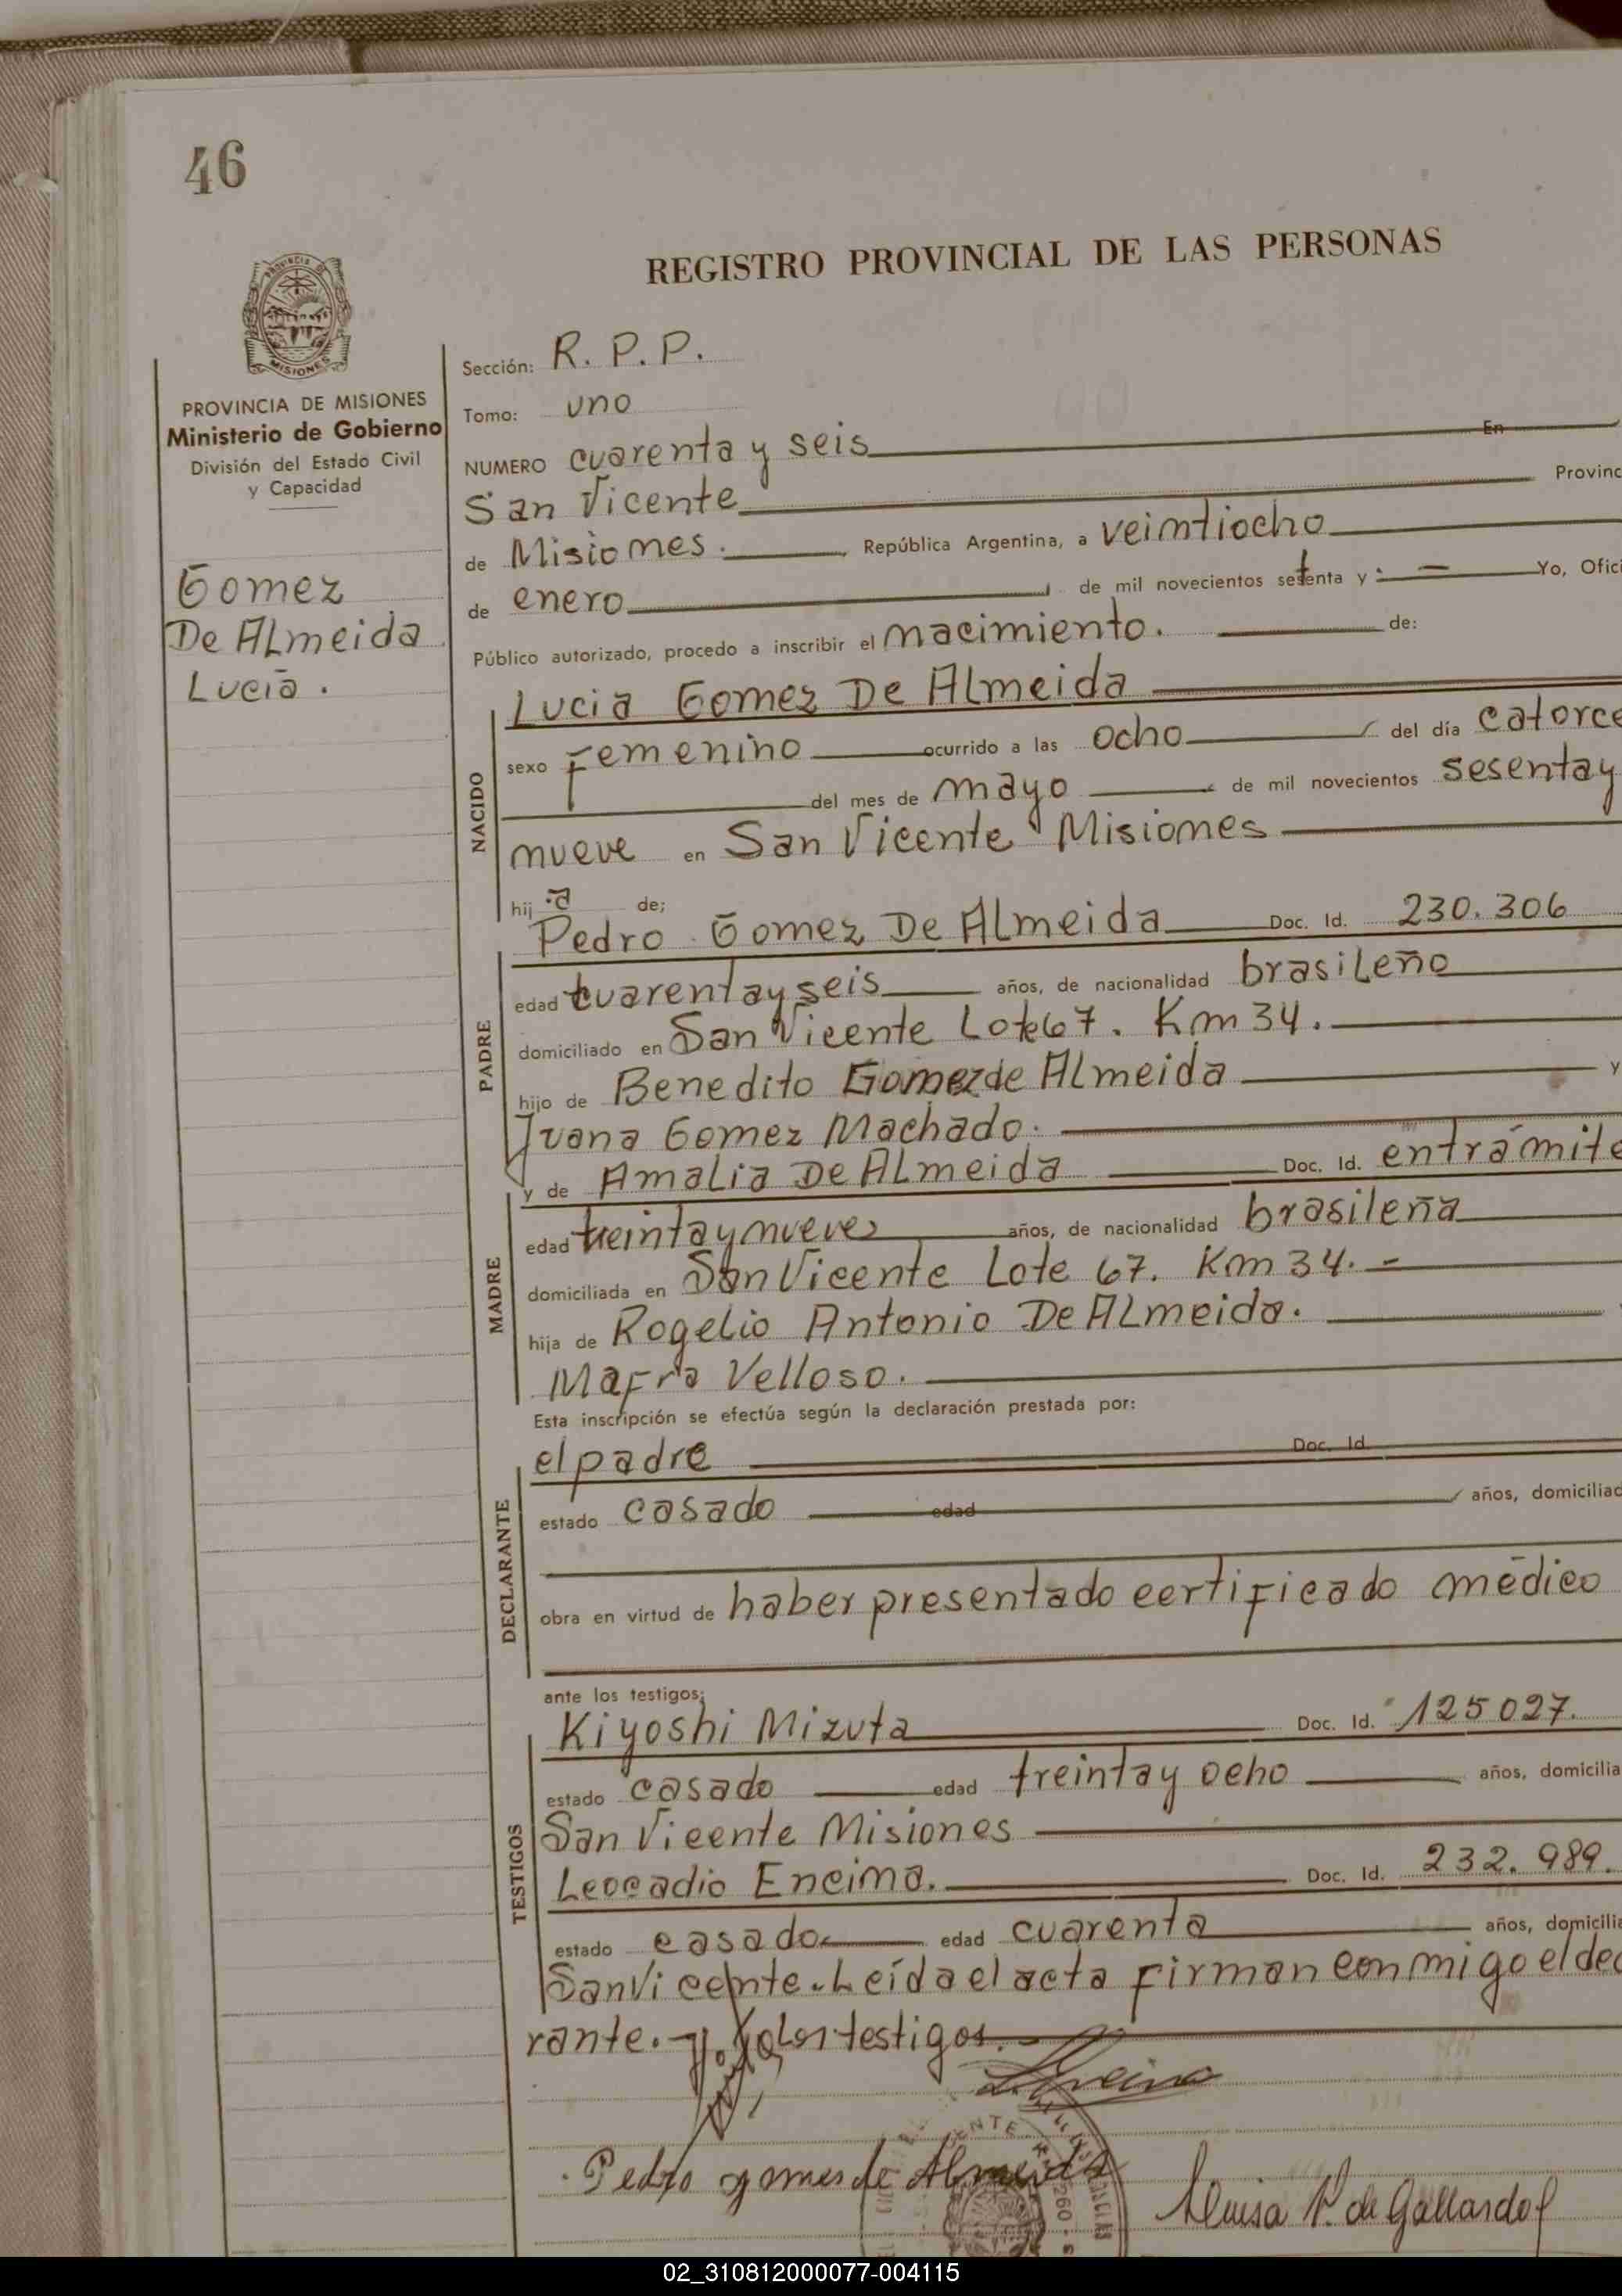 46
REGISTRO PROVINCIAL DE LAS PERSONAS
PROVINCIA DE MISIONES
Ministerio de Gobierno
División del Estado Civil
y Capacidad
Gomez
De ALmeida
Lucía.
Sección: R. P. P.
Tomo: uno
NUMERO cuarenta y seis En
San Vicente Provinc
de Misiones. República Argentina, a veintiocho
de enero de mil novecientos setenta y Yo, Ofici
Público autorizado, procedo a inscribir el nacimiento. de:
NACIDO
Lucia Gomez De ALmeida
sexo Femenino ocurrido a las ocho del día catorce
del mes de mayo de mil novecientos sesentay
nueve en San Vicente Misiones
hij a de;
PADRE
Pedro Gomez De ALmeida Doc. Id. 230.306
edad cuarentayseis años, de nacionalidad brasiLeño
domiciliado en San Vicente Lote67. Km 34.
hijo de Benedito Gomezde ALmeida y
Juana Gomez Machado.
MADRE
y de Amalia De ALmeida Doc. Id. entrámite
edad treintaynueve años, de nacionalidad brasileña
domiciliada en San Vicente Lote 67. Km 34. -
hija de RogeLio Antonio De ALmeida.
Mafra Velloso.
Esta inscripción se efectúa según la declaración prestada por:
DECLARANTE
el padre Doc. Id.
estado casado edad años, domiciliad
obra en virtud de haber presentado certificado médico
ante los testigos;
TESTIGOS
Kiyoshi Mizuta Doc. Id. 125027.
estado casado edad treintay ocho años, domicilia
San Vicente Misiones
Leocadio Encina. Doc. Id. 232.989.
estado casado edad cuarenta años, domicilia
San Vicente. Leída el acta firman conmigo el dec
rante. y los testigos.-
Pedro gomes de Almeida
Luisa V. de Gallardo
02_310812000077-004115